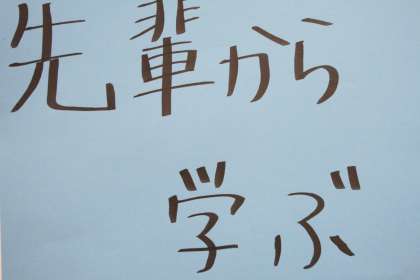 先輩から
学ぶ